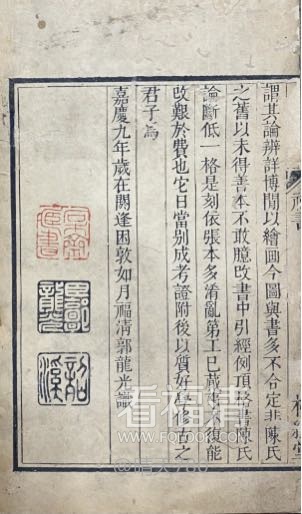 謂其論辨詳博間以繪画今圖與書多不合定非陳氏
之舊以未得善本不敢臆改書中引經例頂格書陳氏
論斷低一格是刻依張本多淆亂第工已蕆事不復能
改艱於費也它日當別成考證附後以質好學修古之
君子焉
嘉慶九年歲在閼逢困敦如月福清郭龍光識
看福清